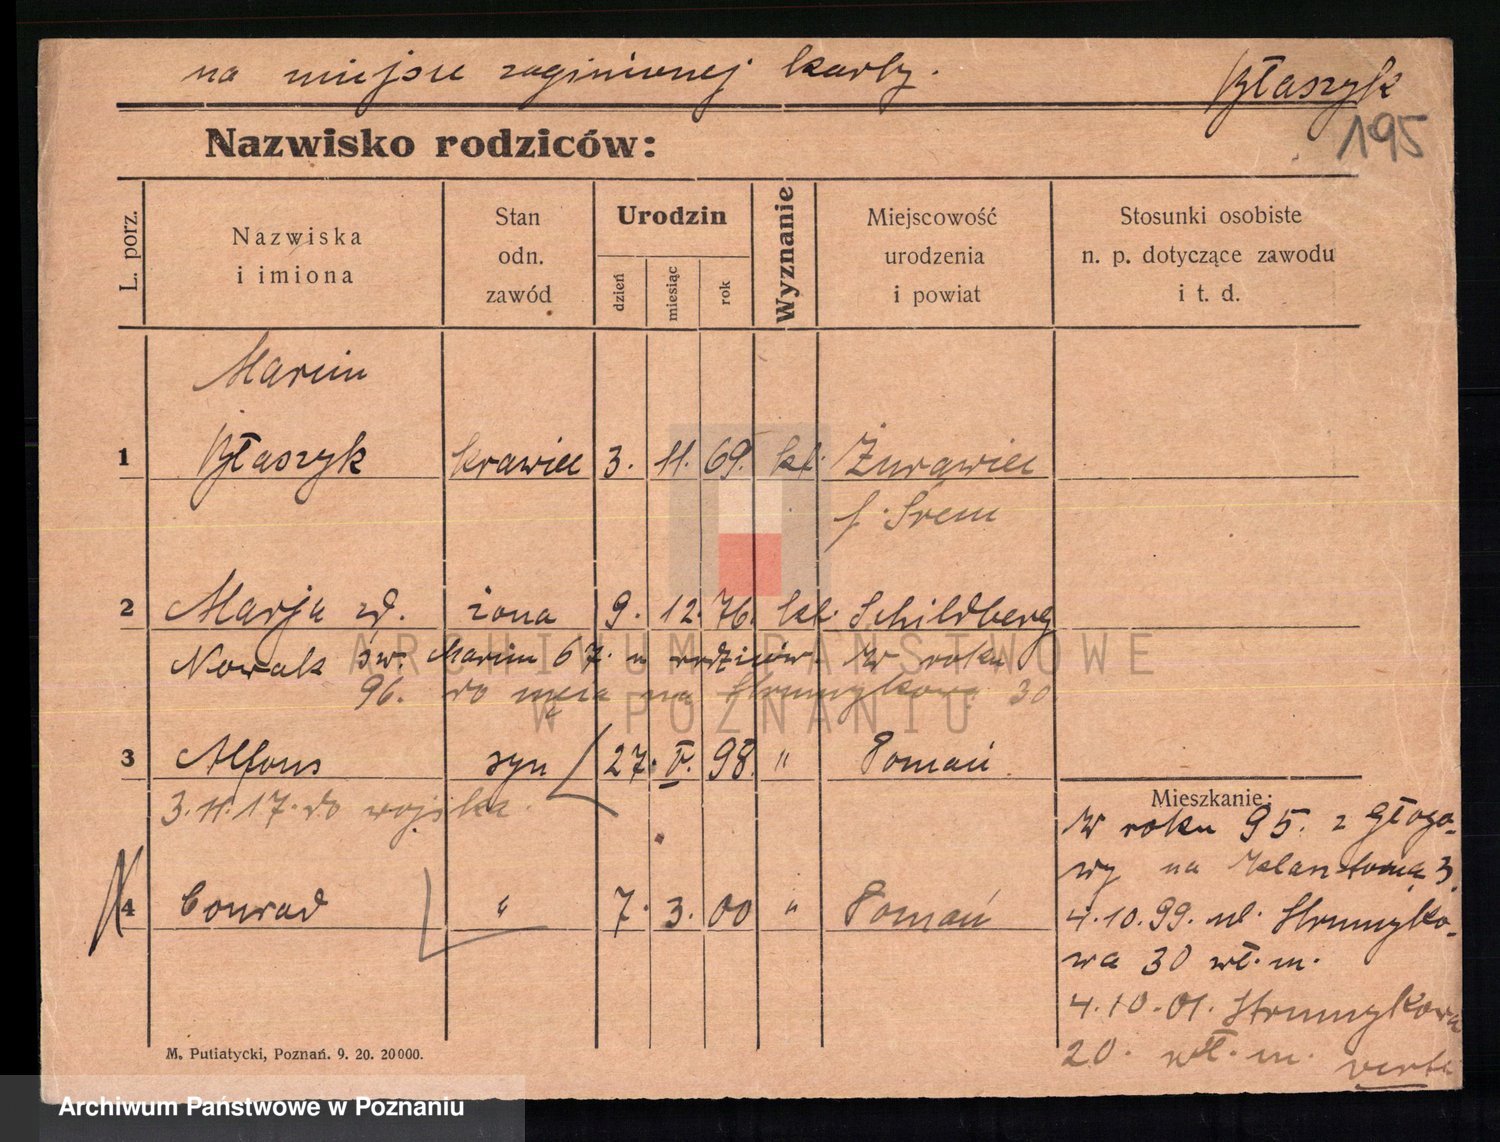 na miejsce zaginionej karty.
Błaszyk
195
Nazwisko rodziców:
L. porz.
Nazwiska
i imiona
Stan
odn.
zawód
Urodzin
dzień
miesiąc
rok
Wyznanie
Miejscowość
urodzenia
i powiat
Stosunki osobiste
n. p. dotyczące zawodu
i t. d.
Marcin
1 Błaszyk krawiec 3. 11. 69. kł. Żurawiec
p. Śrem
2 Marja zd. żona 9. 12. 76. kł. Schildberg
Nowak św. Marcin 67. u rodziców. W roku
96. do męża na Strumykową 30
3 Alfons syn 27. V. 98. " Poznań
3. 11. 17. do wojska.
4 Conrad " 7. 3. 00 " Poznań
Mieszkanie:
W roku 95. z Głogo-
wy na Klasztorną 3.
4.10.99. ul. Strumyko-
wa 30 wł. m.
4.10.01. Strumykowa
20. wł. m. verte
M. Putiatycki, Poznań. 9. 20. 20000.
ARCHIWUM PAŃSTWOWE
W POZNANIU
Archiwum Państwowe w Poznaniu